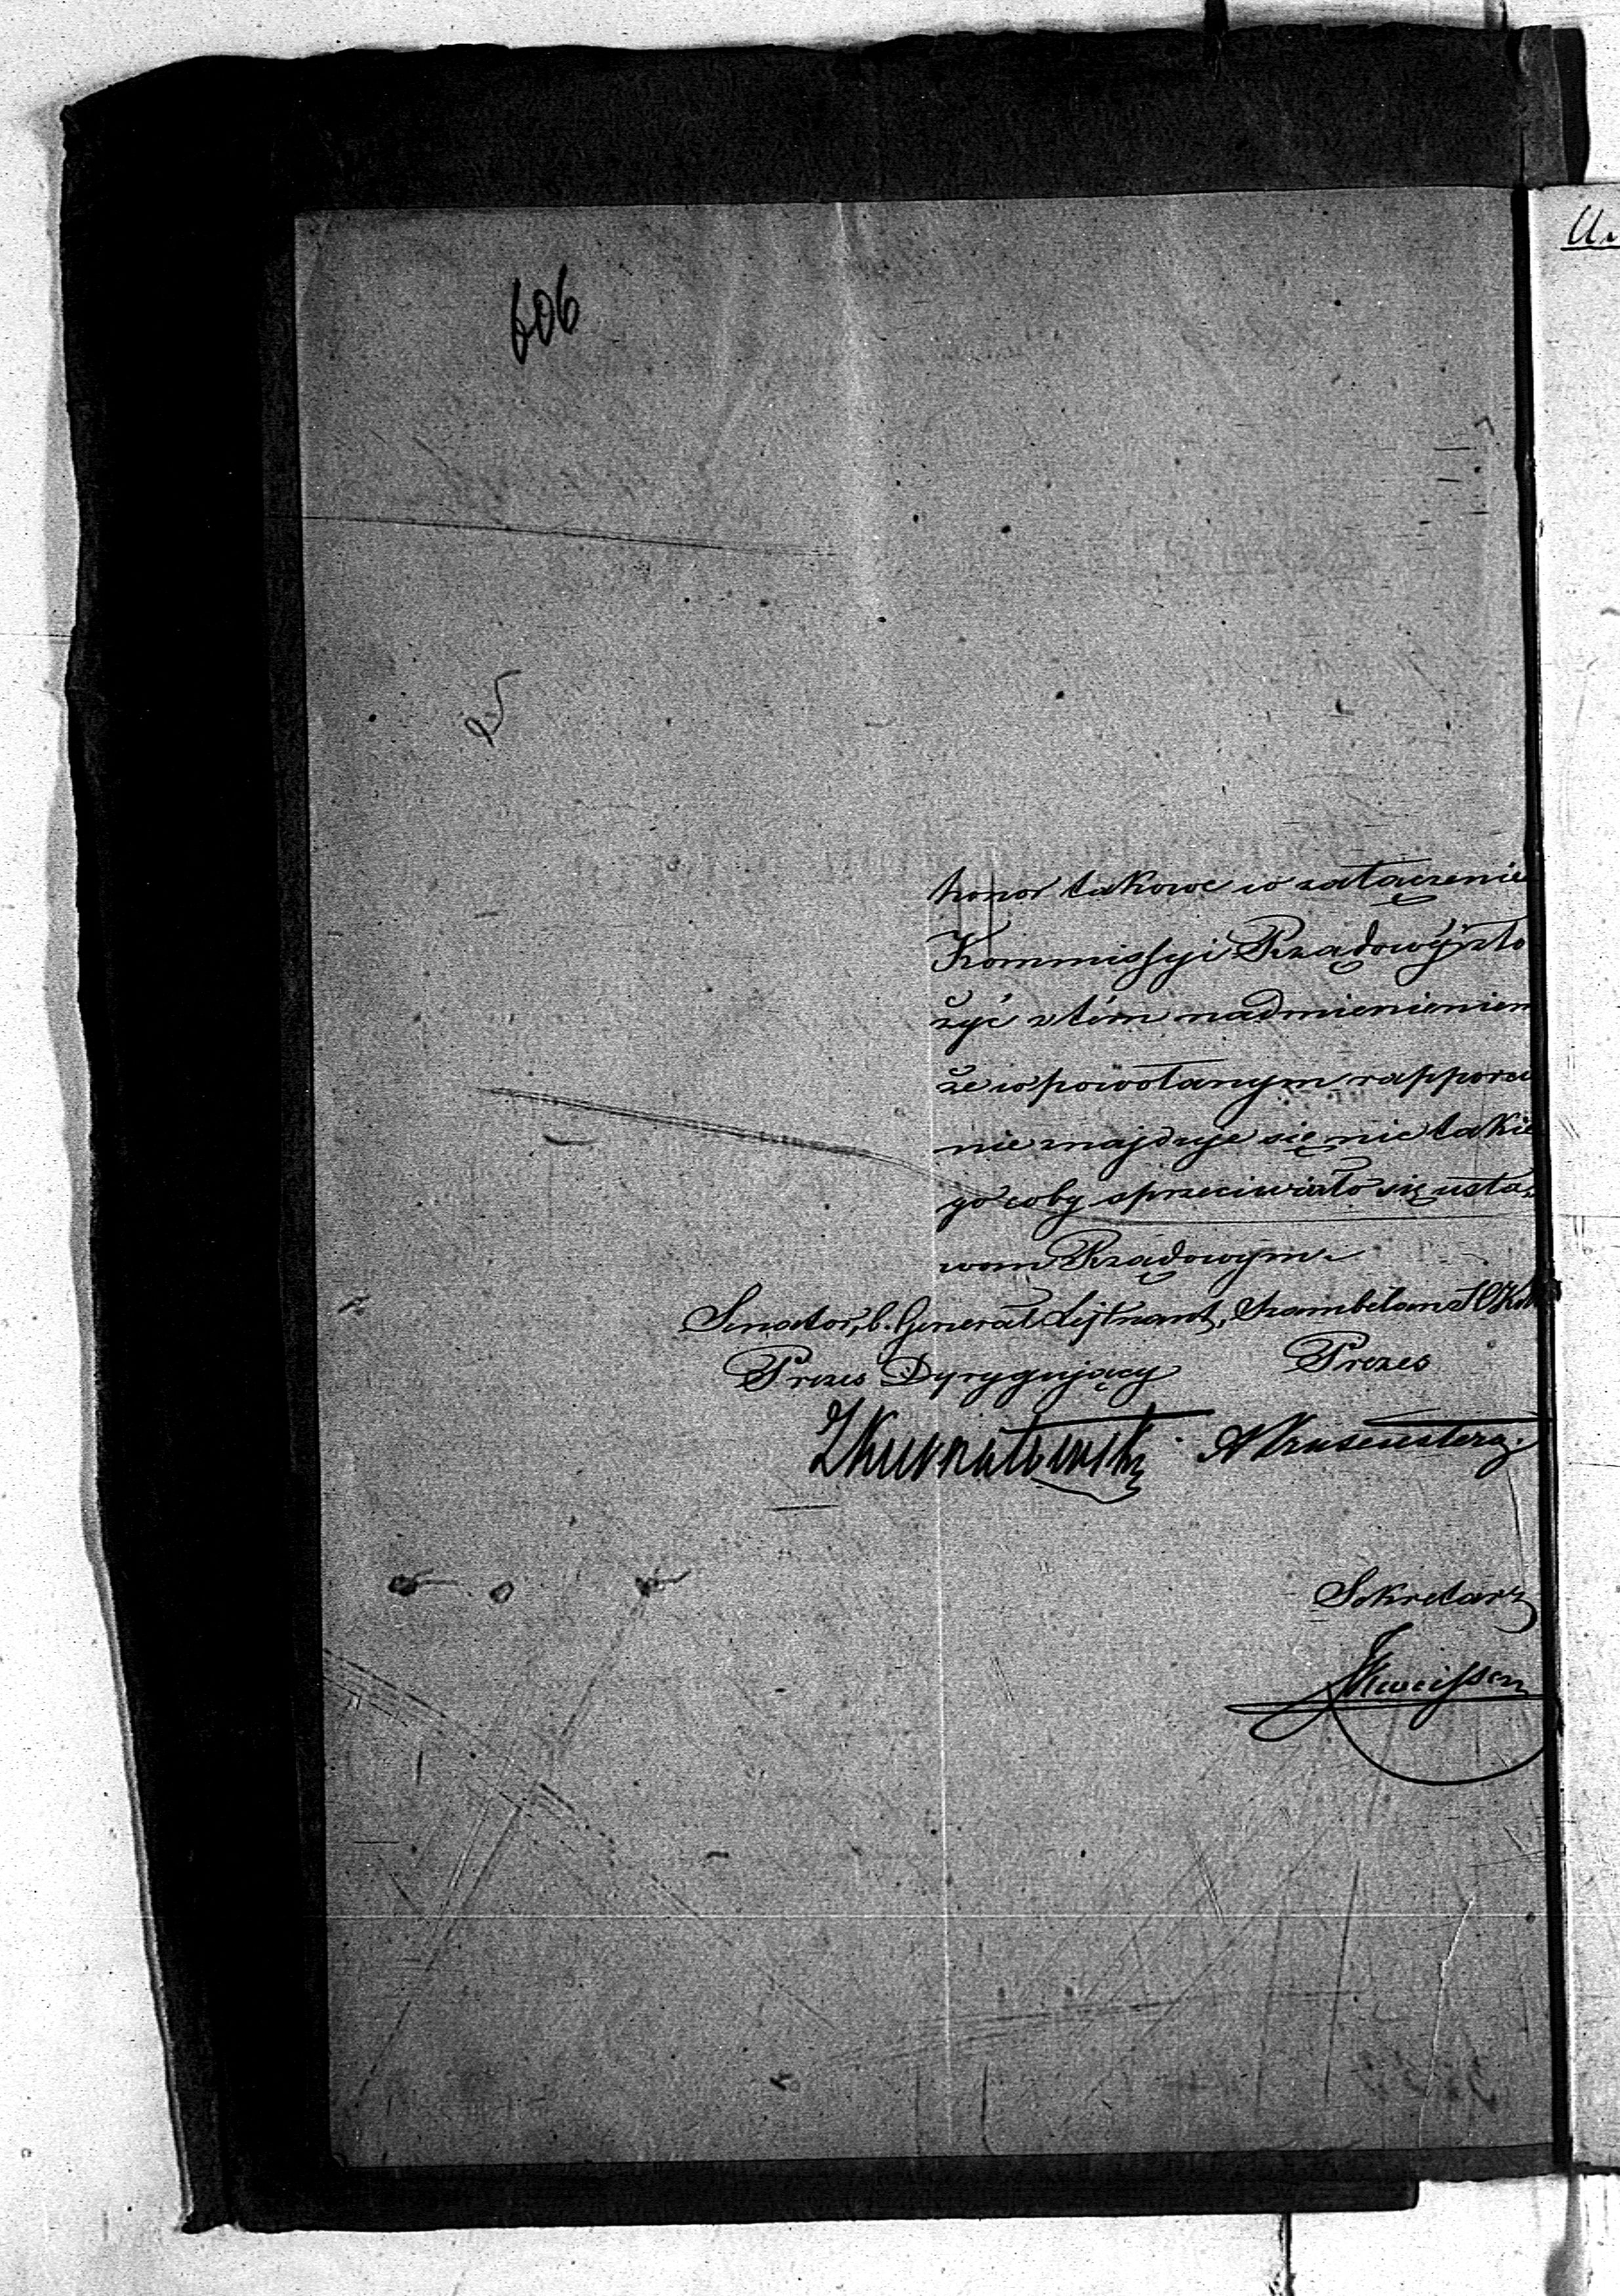 606
honor takowe w załączenie
Kommissyi Rządowéy zło
żyć z tém nadmienieniem
że w powołanym rapporcie
nie znajduje się nic takie
go coby sprzeciwiało się usta,
wom Rządowym.
Senator, b. Generał Lejtnant, Szambelan
Prezes Dyrygujący Prezes
Sekretarz